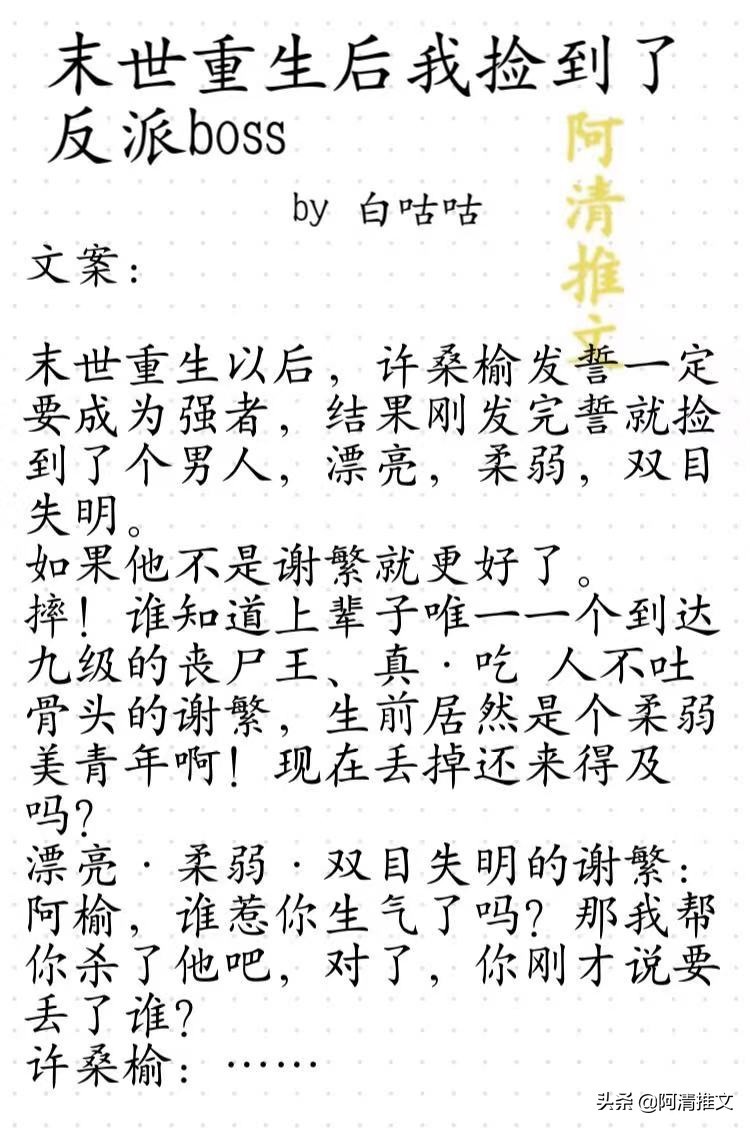 末世重生后我捡到了
反派boss
by 白咕咕
阿清推文
文案：
末世重生以后，许桑榆发誓一定
要成为强者，结果刚发完誓就捡
到了个男人，漂亮，柔弱，双目
失明。
如果他不是谢繁就更好了。
摔！谁知道上辈子唯一一个到达
九级的丧尸王、真·吃 人不吐
骨头的谢繁，生前居然是个柔弱
美青年啊！现在丢掉还来得及
吗？
漂亮·柔弱·双目失明的谢繁：
阿榆，谁惹你生气了吗？那我帮
你杀了他吧，对了，你刚才说要
丢了谁？
许桑榆：……
头条 @阿清推文